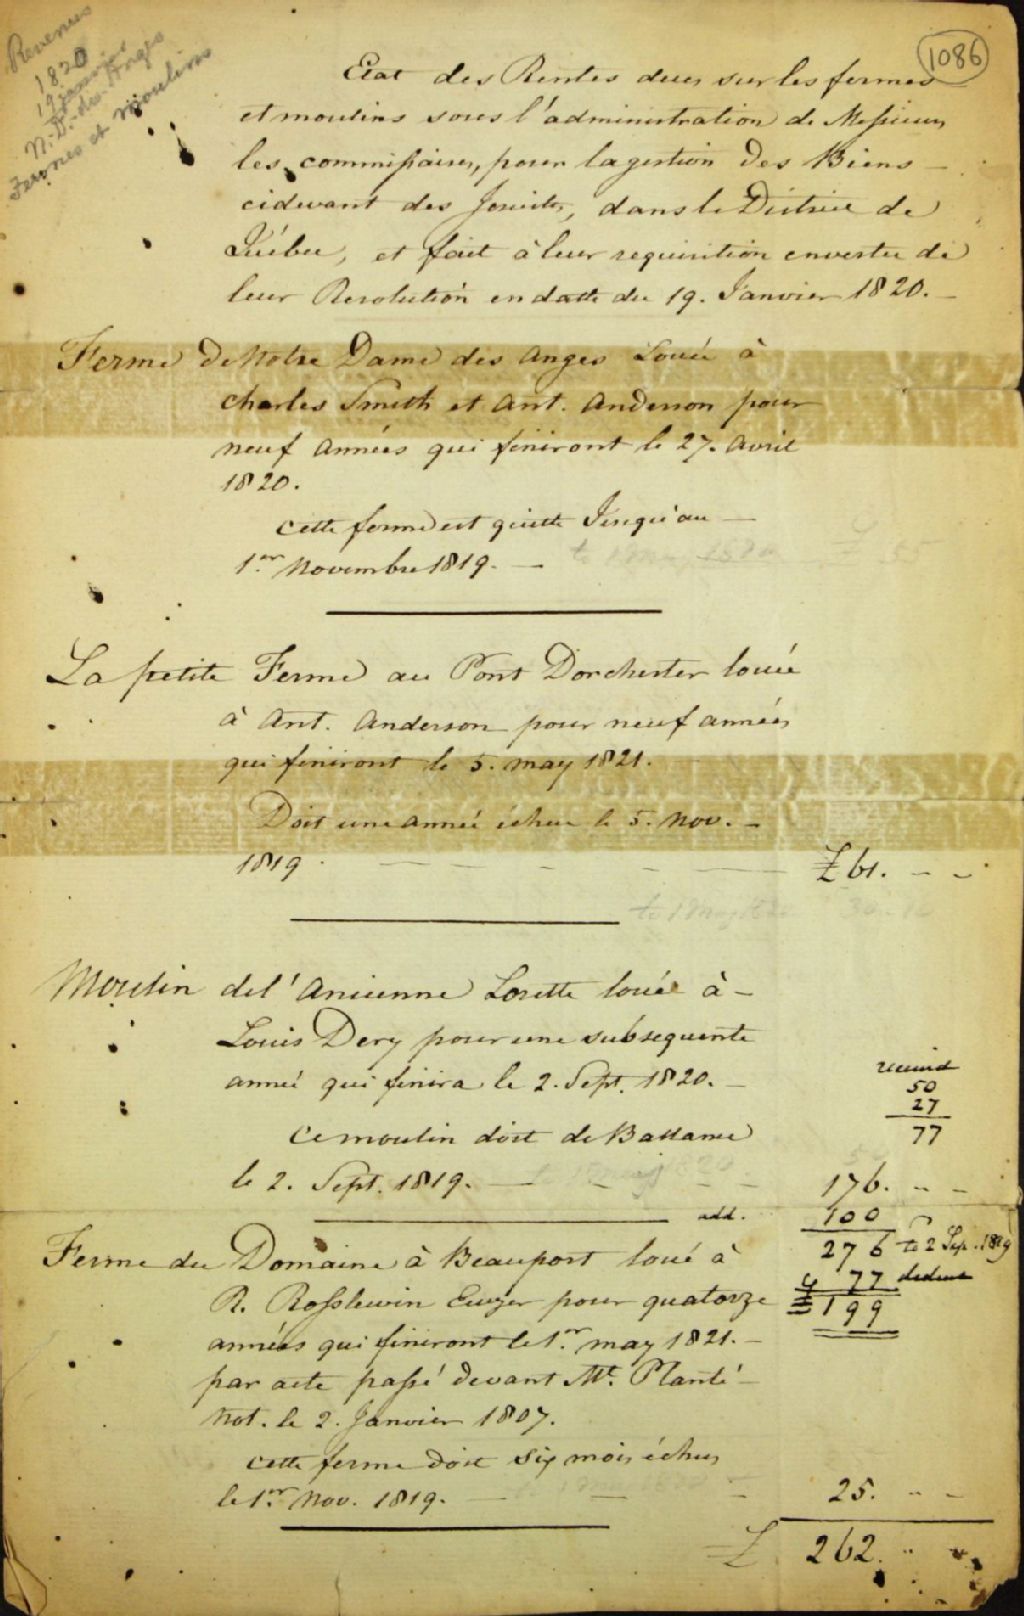 Revenus
1820
19 janvier
N.D.-des-Anges
Fermes et moulins
1086
Etat des Rentes dues sur les fermes
et moulins sous l'administration de Messieurs
les commissaires, pour la gestion des Biens
cidevant des Jesuites, dans le District de
Québec, et fait à leur requisition envertu de
leur Resolution en datte du 19. Janvier 1820.
Ferme de Notre Dame des Anges Louée à
Charles Smith et Ant. Anderson pour
neuf années qui finiront le 27. avril
1820.
cette ferme est quitte Jusqu'au
1er. Novembre 1819.
La petite Ferme au Pont Dorchester louée
à Ant. Anderson pour neuf années
qui finiront le 5. may 1821.
Doit une année échue le 5. Nov.
1819 £ 61. " "
to 1 May 30
Moulin del'Ancienne Lorette louée à
Louis Dery pour une subsequente
année qui finira le 2. Sept. 1820.
received
50
27
77
ce moulin doit de Ballance
le 2. Sept. 1819. 176. " "
add. 100
276 to 2 Sep. 1819
77 deduct
199
Ferme du Domaine à Beauport loué à
R. Rosslewin Ecuyer pour quatorze
années qui finiront le 1er. may 1821.
par acte passé devant Mr. Planté
Not. le 2. Janvier 1807.
cette ferme doit six mois échus
le 1er. Nov. 1819. 25. " "
£ 262. " "